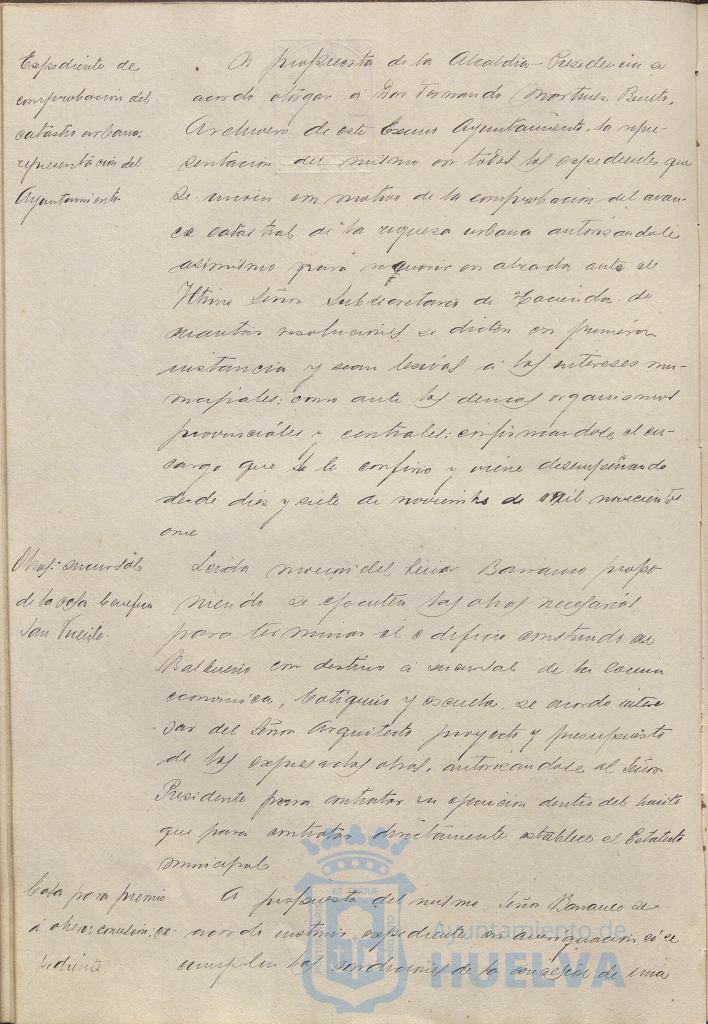 Expediente de
comprobación del
catastro urbano;
representación del
Ayuntamiento
A propuesta de la Alcaldia-Presidencia se
acordo otorgar a Don Fernando Martinez Benito,
Archivero de este Excmo Ayuntamiento, la repre-
sentacion del mismo en todos los expedientes que
se inicien con motivo de la comprobacion del avan-
ce catastral de la riqueza urbana autorizandole
asimismo para recurrir en alzada ante el
Iltmo Señor Subsecretario de Hacienda de
cuantas resoluciones se dicten en primera
instancia y sean lesivas a los intereses mu-
nicipales; como ante los demas organismos
provinciales y centrales; confirmandose el en-
cargo que se le confirio y viene desempeñando
desde diez y siete de noviembre de mil novecientos
once
Obras: sucursal
de la casa benefica
San Vicente.
Leida mocion del Señor Barranco propo
niendo se ejecuten las obras necesarias
para terminar el edificio construido en
Balbueno con destino a sucursal de la Cocina
economica, botiquin y escuela, se acordo intere
sar del Señor Arquitecto proyecto y presupuesto
de las expresadas obras, autorizandose al Señor
Presidente para contratar su ejecucion dentro del limite
que para contratar directamente establece el Estatuto
municipal
Casa para premio
a obrero; concesion; ex-
pediente
A propuesta del mismo Señor Barranco se
acordo instruir expediente en averiguacion si se
cumplen las condiciones de la concesion de una
Ayuntamiento de
HUELVA